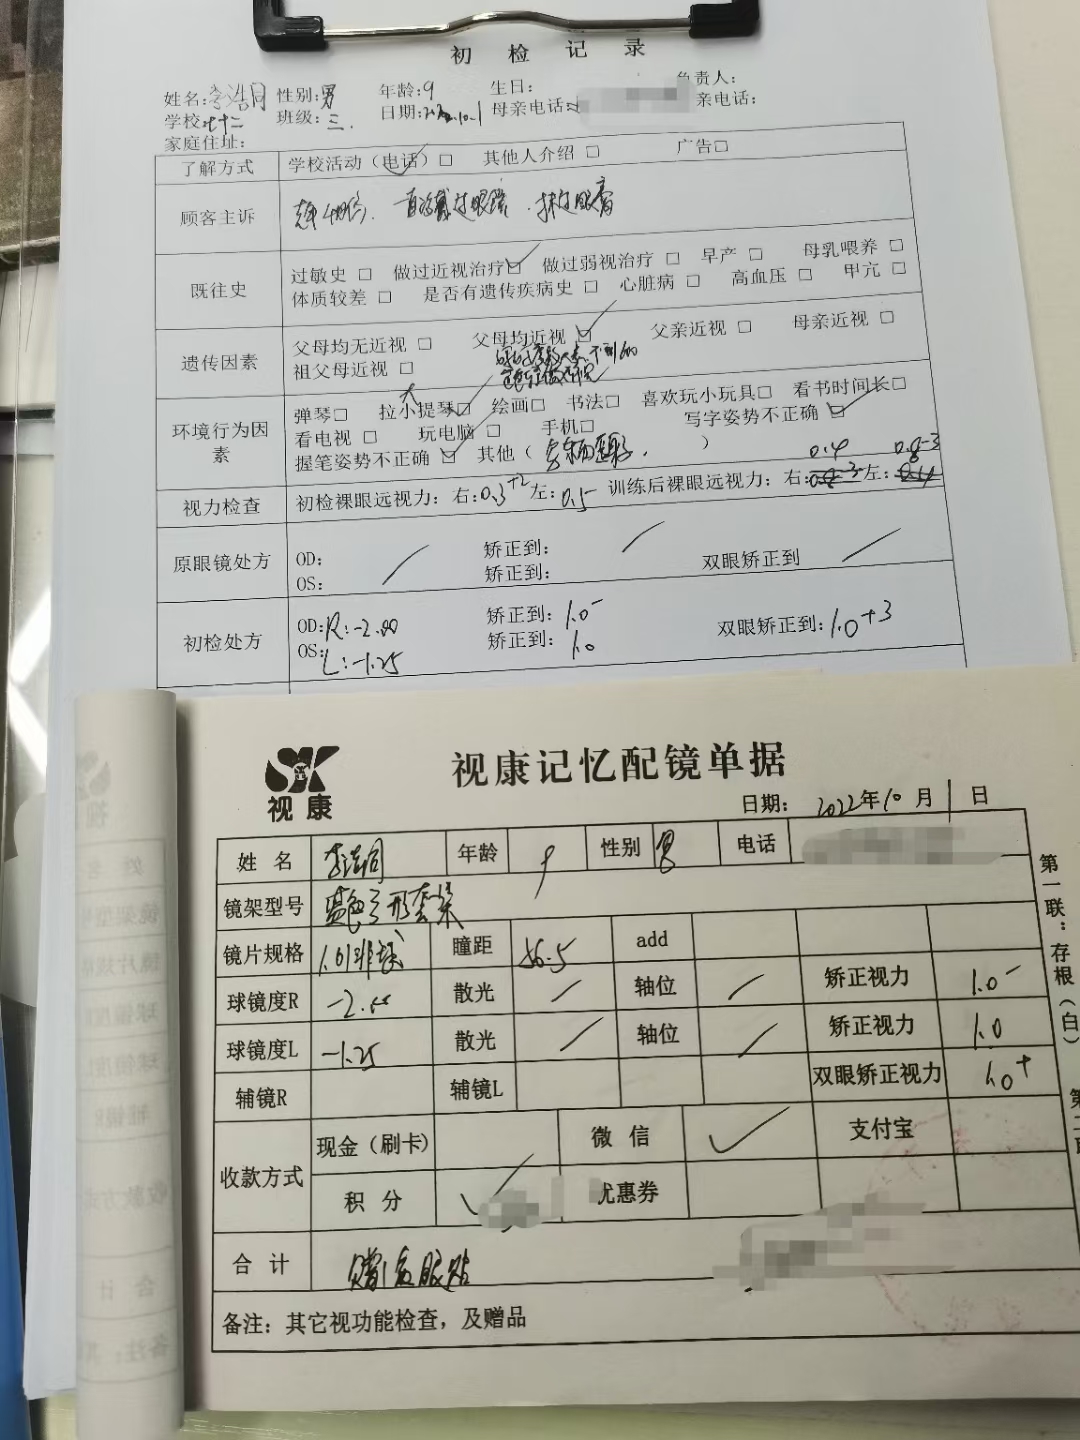 初检记录
姓名:李浩同 性别:男 年龄:9 生日: 负责人:
学校:七十二 班级:三. 日期:2022.10.1 母亲电话: 亲电话:
家庭住址:
了解方式 学校活动(电话)□ 其他人介绍 □ 广告□
顾客主诉 戴过眼镜. 抹过眼膏
既往史 过敏史 □ 做过近视治疗☑ 做过弱视治疗 □ 早产 □ 母乳喂养 □
体质较差 □ 是否有遗传疾病史 □ 心脏病 □ 高血压 □ 甲亢 □
遗传因素 父母均无近视 □ 父母均近视 ☑ 父亲近视 □ 母亲近视 □
祖父母近视 □
环境行为因素 弹琴□ 拉大小提琴☑ 绘画□ 书法□ 喜欢玩小玩具□ 看书时间长□
看电视 □ 玩电脑 □ 手机□ 写字姿势不正确 ☑
握笔姿势不正确 ☑ 其他( )
视力检查 初检裸眼远视力: 右:0.3+2 左:0.5- 训练后裸眼远视力: 右:0.4 左:0.8-3
原眼镜处方 OD: / 矫正到: / 双眼矫正到 /
OS: 矫正到:
初检处方 OD:R:-2.00 矫正到: 1.0- 双眼矫正到: 1.0+3
OS:L:-1.25 矫正到: 1.0
视康
视康记忆配镜单据
日期: 2022年10月1日
姓名 李浩同 年龄 9 性别 男 电话
镜架型号 蓝色方形套架
镜片规格 1.61非球 瞳距 56.5 add
球镜度R -2.00 散光 / 轴位 / 矫正视力 1.0-
球镜度L -1.25 散光 / 轴位 / 矫正视力 1.0
辅镜R 辅镜L 双眼矫正视力 1.0+
收款方式 现金(刷卡) 微信 ✓ 支付宝
积分 ✓ 优惠券
合计 赠1盒眼贴
备注:其它视功能检查,及赠品
第一联:存根(白)